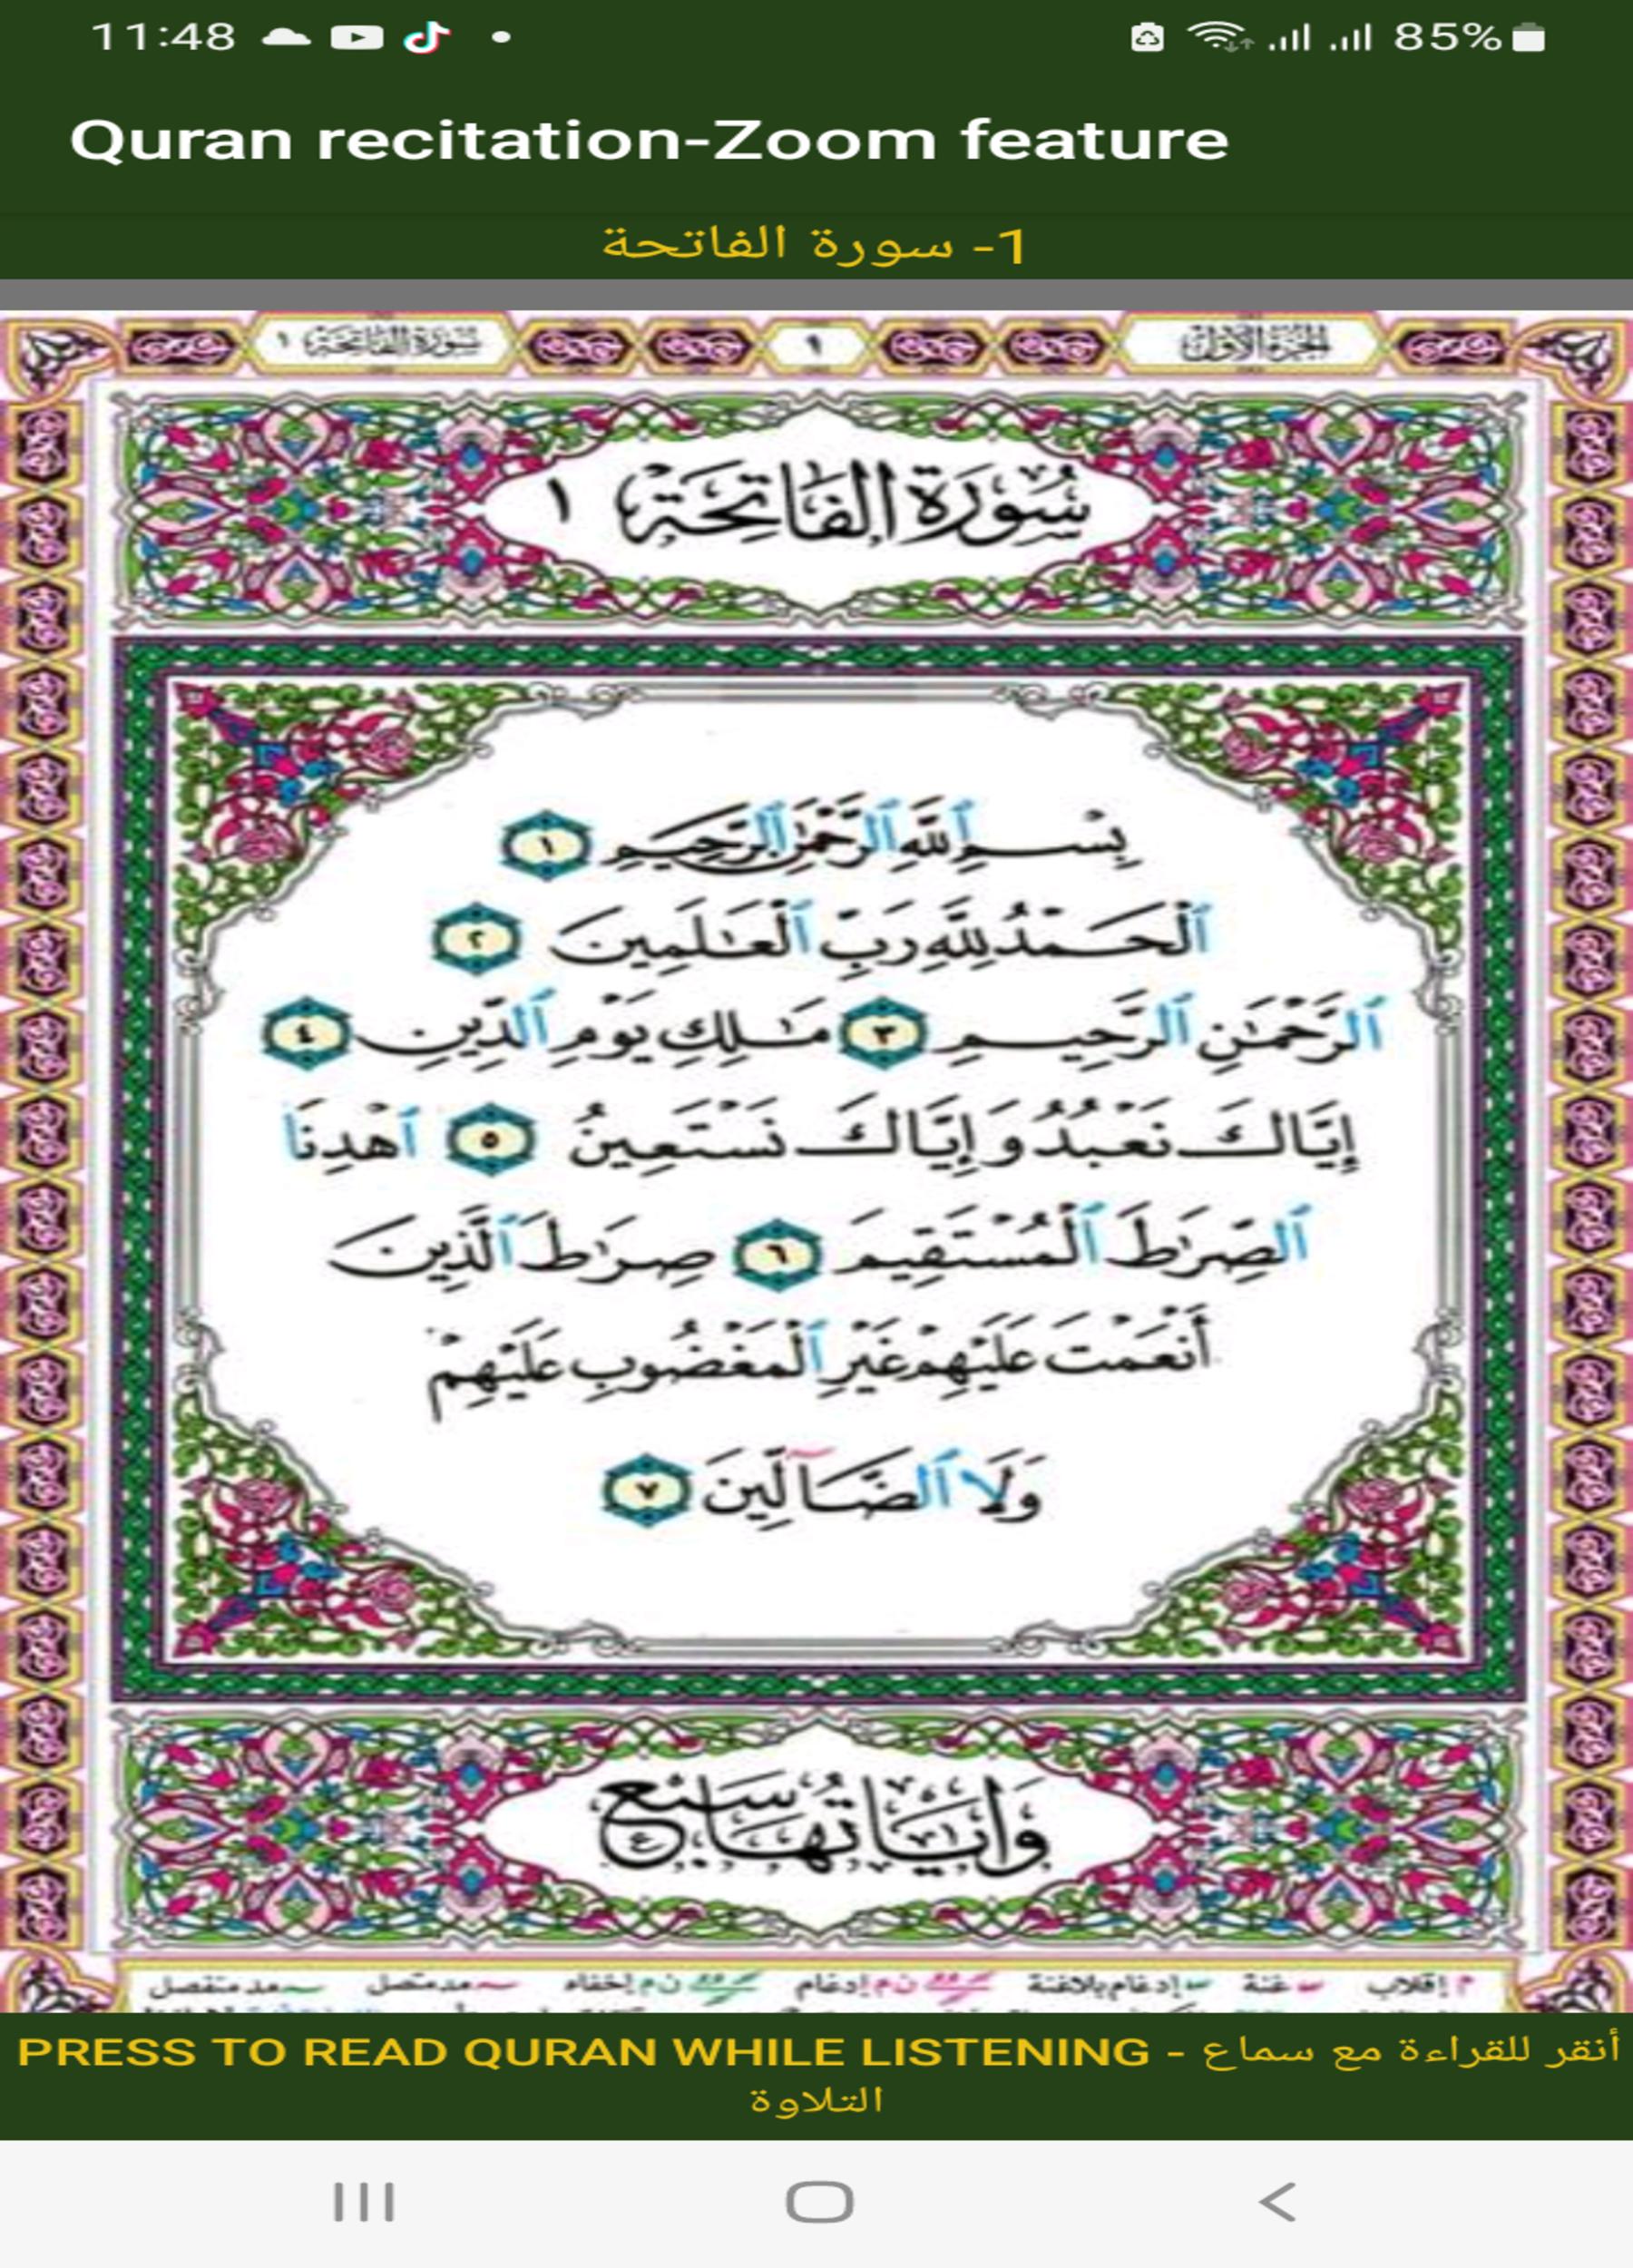 11:48
85%
Quran recitation-Zoom feature
1- سورة الفاتحة
الجزء الأول
١
سورة الفاتحة ١
سُورَةُ الفَاتِحَةِ ١
بِسْمِ ٱللَّهِ ٱلرَّحْمَٰنِ ٱلرَّحِيمِ ١
ٱلْحَمْدُ لِلَّهِ رَبِّ ٱلْعَٰلَمِينَ ٢
ٱلرَّحْمَٰنِ ٱلرَّحِيمِ ٣ مَٰلِكِ يَوْمِ ٱلدِّينِ ٤
إِيَّاكَ نَعْبُدُ وَإِيَّاكَ نَسْتَعِينُ ٥ ٱهْدِنَا
ٱلصِّرَٰطَ ٱلْمُسْتَقِيمَ ٦ صِرَٰطَ ٱلَّذِينَ
أَنْعَمْتَ عَلَيْهِمْ غَيْرِ ٱلْمَغْضُوبِ عَلَيْهِمْ
وَلَا ٱلضَّآلِّينَ ٧
وَآيَاتُهَا سَبْعٌ
م إقلاب غنة إدغام بلاغنة ن م إدغام ن م إخفاء مد متصل مد منفصل
PRESS TO READ QURAN WHILE LISTENING - أنقر للقراءة مع سماع
التلاوة